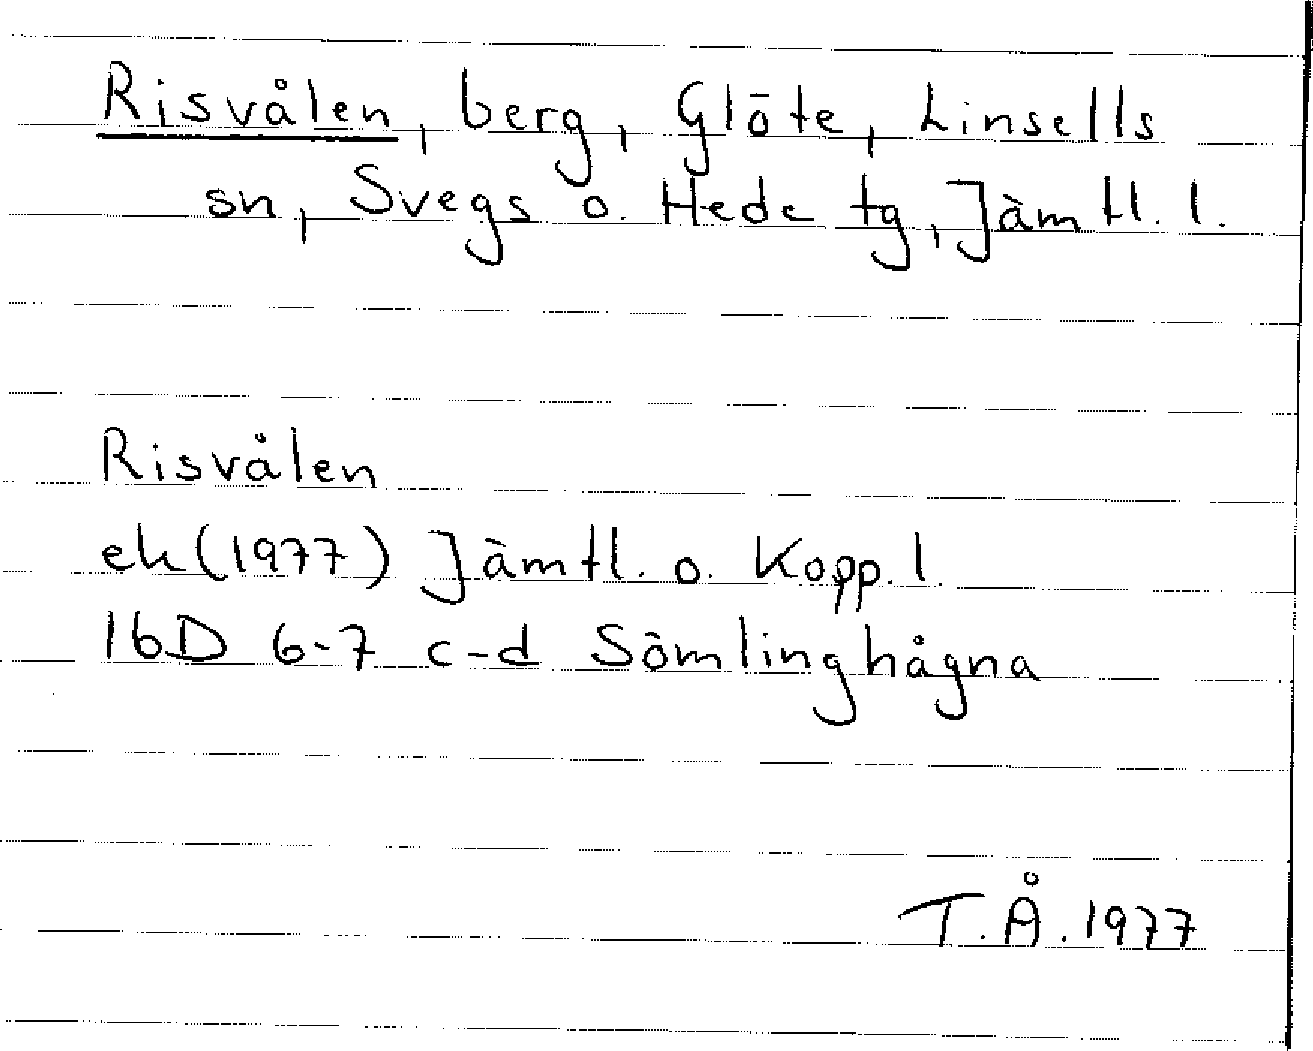 Risvålen, berg, Glöte, Linsells
sn, Svegs o. Hede tg, Jämtl. l.
Risvålen
ek (1977) Jämtl. o. Kopp. l.
16D 6-7 c-d Sömlinghågna
T.Å. 1977